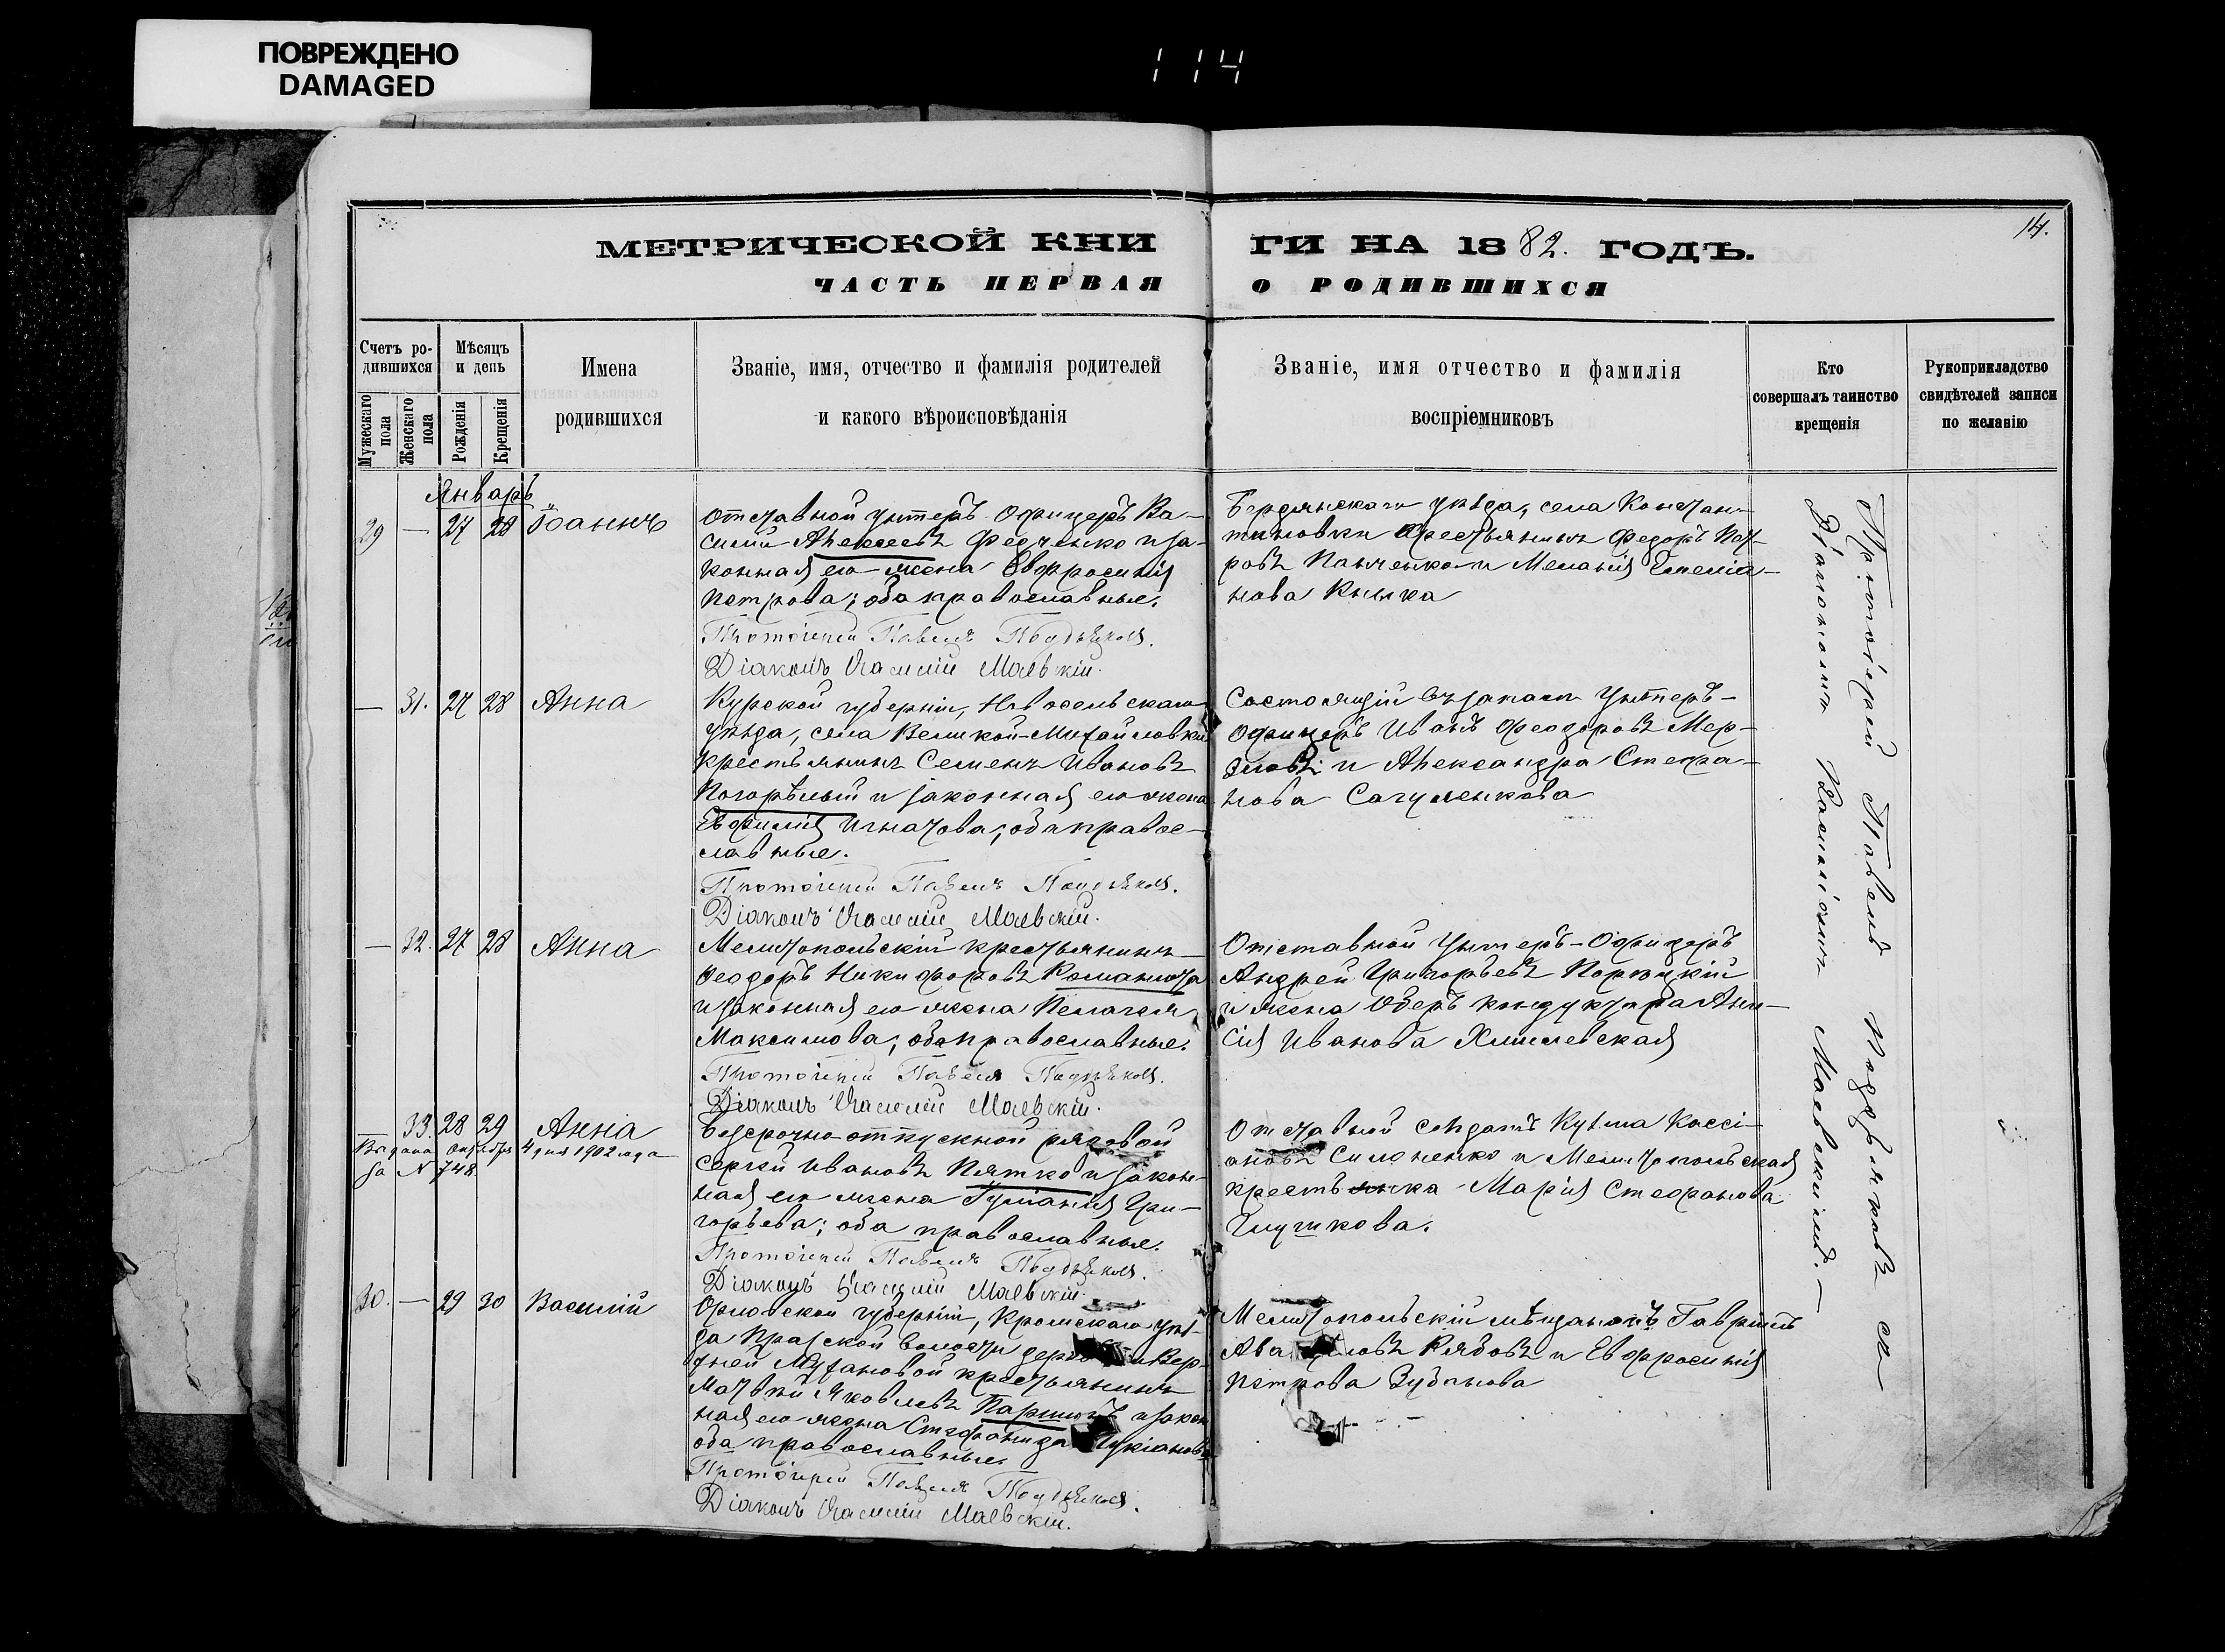 ПОВРЕЖДЕНО
DAMAGED
114
14.
МЕТРИЧЕСКОЙ КНИ ГИ НА 1882. ГОДЪ.
ЧАСТЬ ПЕРВАЯ О РОДИВШИХСЯ
Счетъ родившихся
Мужескаго пола
Женскаго пола
Мѣсяцъ и день
Рожденія
Крещенія
Имена
родившихся
Званіе, имя, отчество и фамилія родителей
и какого вѣроисповѣданія
Званіе, имя отчество и фамилія
воспріемниковъ
Кто
совершалъ таинство
крещенія
Рукоприкладство
свидѣтелей записи
по желанію
Январь
29 — 27 28 Іоаннъ
Отставной унтеръ-Офицеръ Ва-
силій Алексеевъ Федченко и за-
конная его жена Евфросинія
Петрова; оба православные.
Протоіерей Павелъ Поздняковъ.
Діаконъ Василій Маевскій.
Бердянскаго уѣзда, села Констан-
тиновки крестьянинъ Федоръ Пет-
ровъ Панченко и Меланія Емеліа-
нова
— 31. 27 28 Анна
Курской губерніи, Новооскольскаго
уѣзда, села Великой-Михайловки
крестьянинъ Семенъ Ивановъ
Погорѣлый и законная его жена
Евфимія Игнатова; оба правос-
лавные.
Протоіерей Павелъ Поздняковъ.
Діаконъ Василій Маевскій.
Состоящій въ запасѣ Унтеръ-
офицеръ Иванъ Феодоровъ Мер-
зловъ и Александра Стефа-
нова
— 32. 27 28 Анна
Мелитопольскій крестьянинъ
Феодоръ Никифоровъ
и законная его жена Пелагея
Максимова; оба православные.
Протоіерей Павелъ Поздняковъ.
Діаконъ Василій Маевскій.
Отставной Унтеръ-Офицеръ
Андрей Григорьевъ
и жена Оберъ кондуктора Ани-
сія Иванова Хмилевская
— 33. 28 29 Анна
Выдана октября 4 дня 1902 года
за N 748
Безсрочно-отпускной рядовой
Сергей Ивановъ Пятко и закон-
ная его жена Гри-
горьева; оба православные.
Протоіерей Павелъ Поздняковъ.
Діаконъ Василій Маевскій.
Отставной солдатъ Кузьма Кассі-
ановъ Симоненко и Мелитопольская
крестьянка Марія Стефанова
Глушкова.
30. — 29 30 Василій
Орловской губерніи, Кромскаго уѣз-
да волости
крестьянинъ
Матвѣй Яковлевъ и закон-
ная его жена Стефанида Лукіанова
оба православные.
Протоіерей Павелъ Поздняковъ.
Діаконъ Василій Маевскій.
Мелитопольскій мѣщанинъ Гавріилъ
Рябовъ и Евфросинія
Петрова Зубанова
Протоіерей Павелъ Поздняковъ съ
Діакономъ Василіемъ Маевскимъ.—